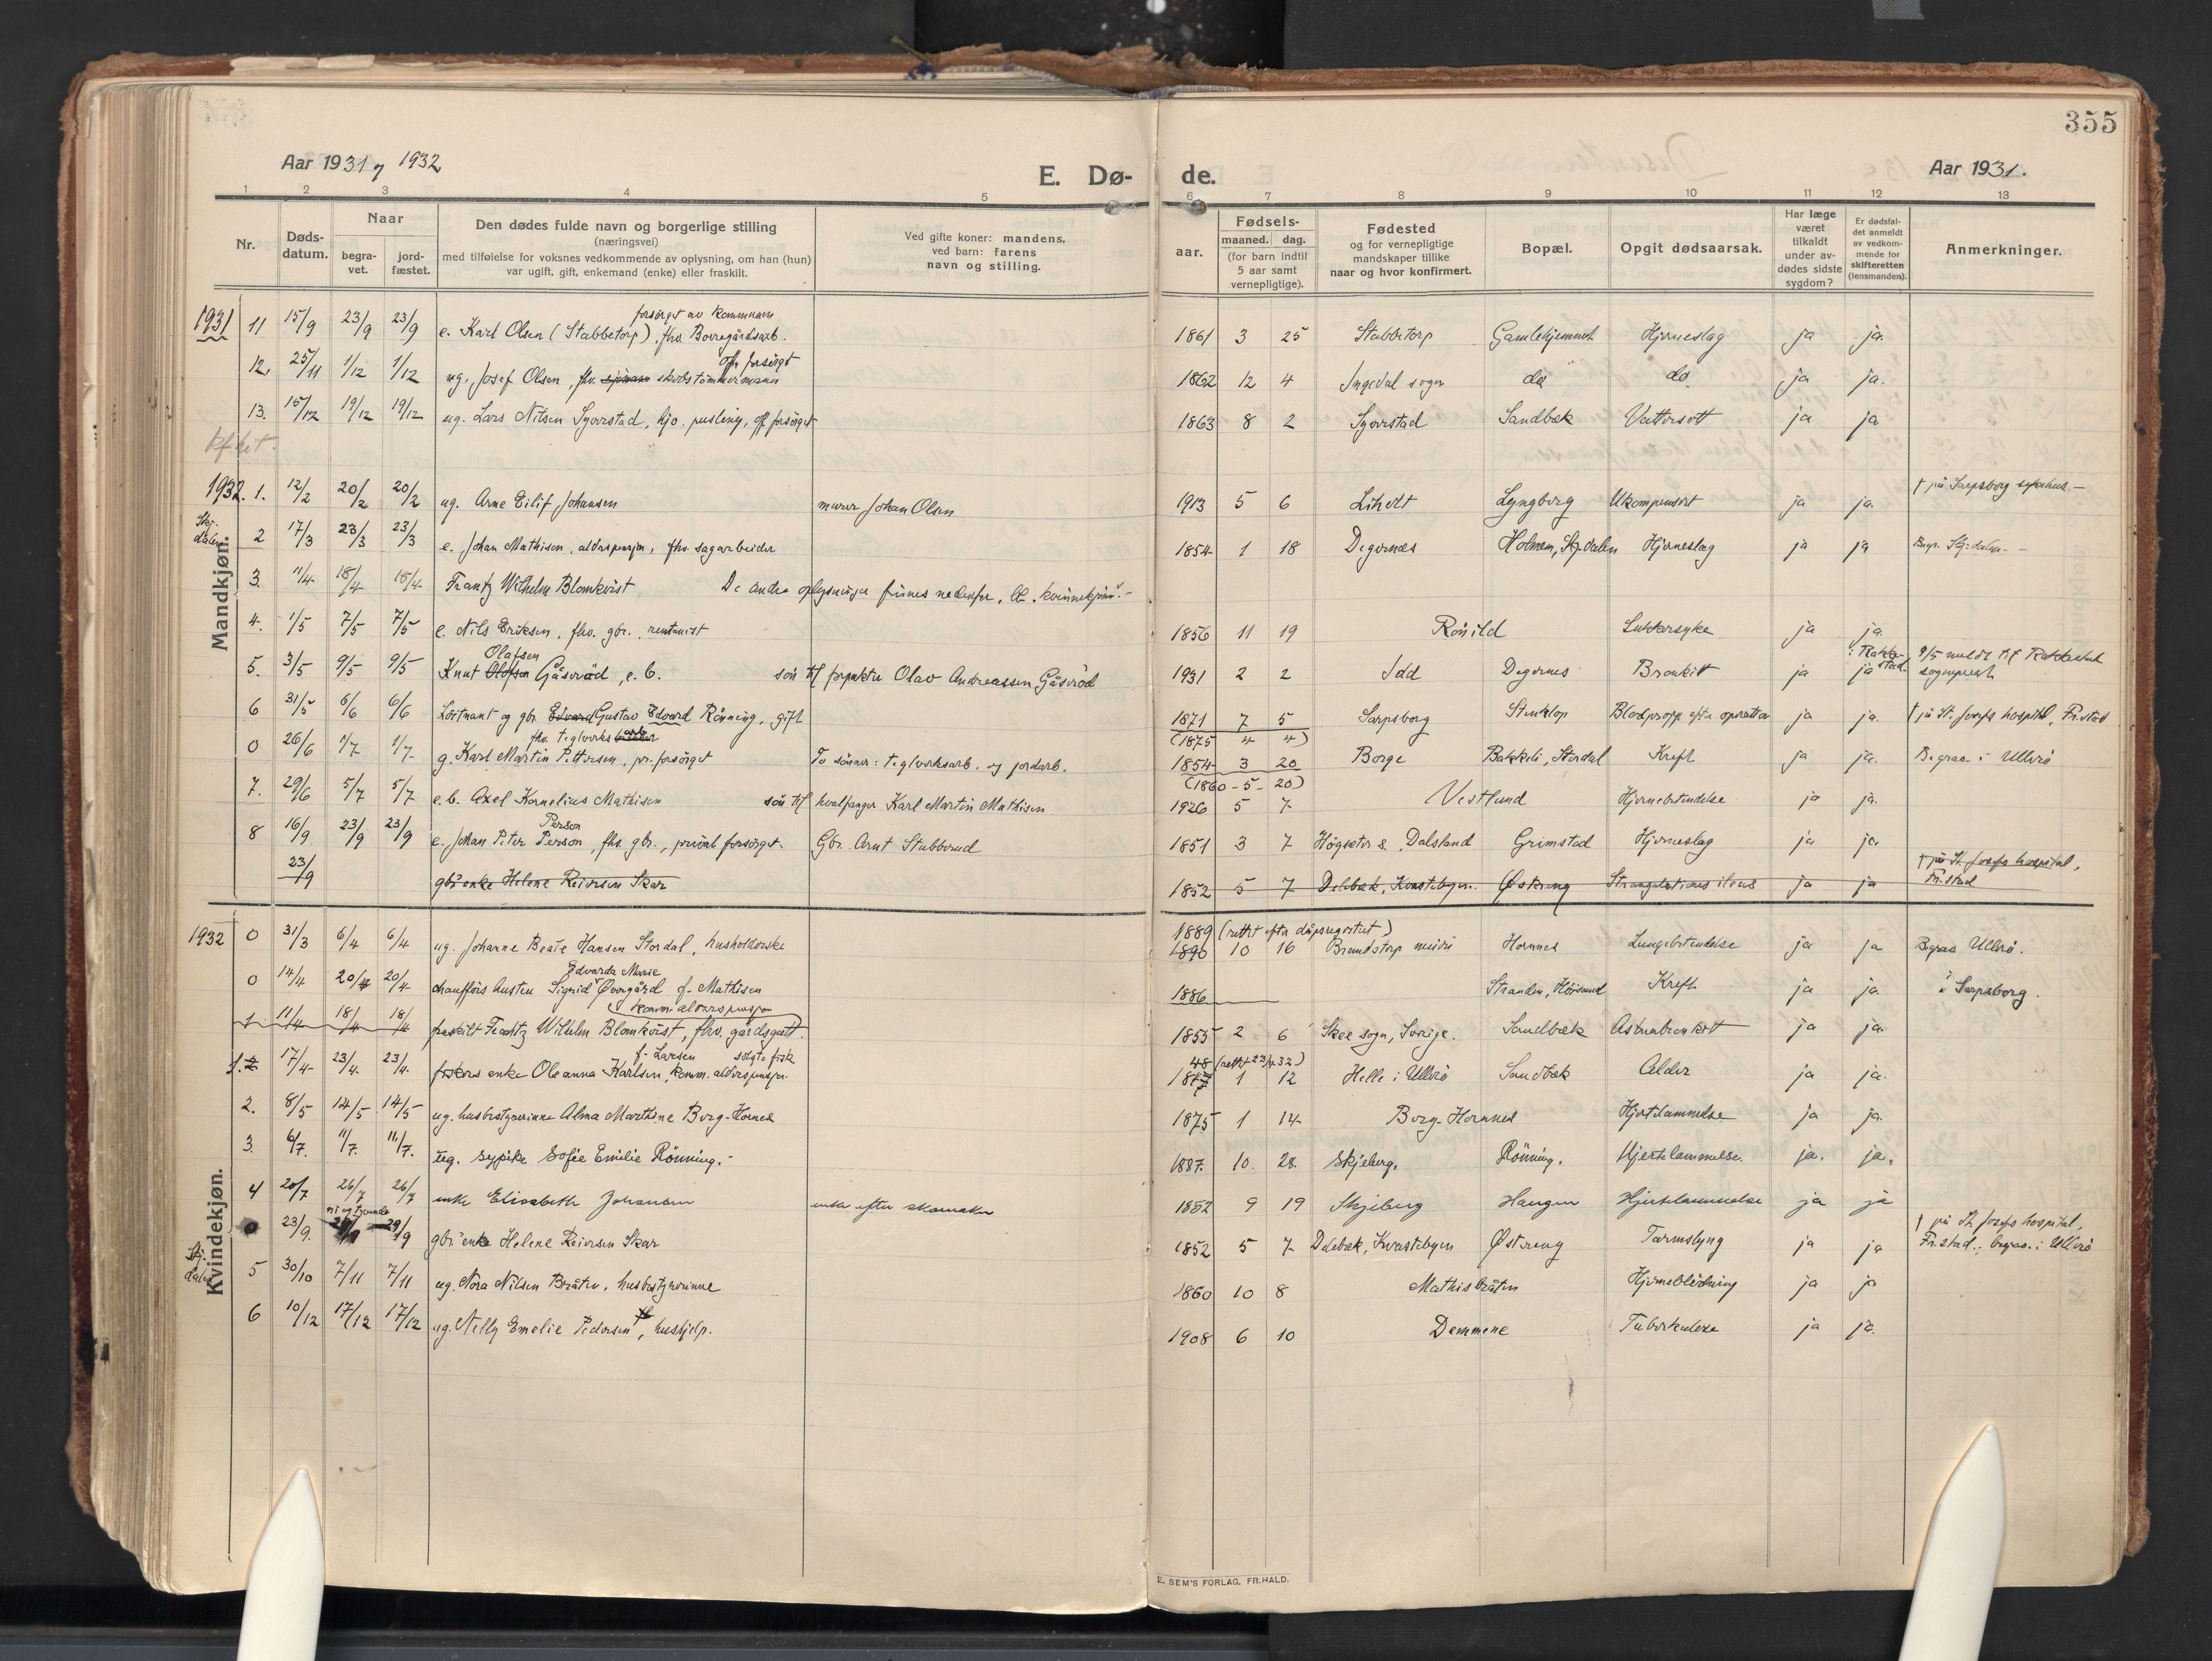 355
Aar 1931 og 1932
E. Dø- de.
Aar 1931.
1 2 3 4 5 6 7 8 9 10 11 12 13
Nr.
Døds-
datum.
Naar
begra-
vet.
jord-
fæstet.
Den dødes fulde navn og borgerlige stilling
(næringsvei)
med tilføielse for voksnes vedkommende av oplysning, om han (hun)
var ugift, gift, enkemand (enke) eller fraskilt.
Ved gifte koner: mandens,
ved barn: farens
navn og stilling.
aar.
Fødsels-
maaned. dag.
(for barn indtil
5 aar samt
vernepligtige).
Fødested
og for vernepligtige
mandskaper tillike
naar og hvor konfirmert.
Bopæl.
Opgit dødsaarsak.
Har læge
været
tilkaldt
under av-
dødes sidste
sygdom?
Er dødsfal-
det anmeldt
av vedkom-
mende for
skifteretten
(lensmanden).
Anmerkninger.
forsörget av kommunen
1931 11 15/9 23/9 23/9 e. Karl Olsen (Stabbetorp), fhv. Borregårdsarb. 1861 3 25 Stabbetorp Gamlehjemmet Hjerneslag ja ja.
off. forsörgt
12. 25/11 1/12 1/12 ug. Josef Olsen, fhv. sjömann skibstömmermann 1862 12 4 Ingedal sogn do do. ja ja.
13. 15/12 19/12 19/12 ug. Lars Nilsen Sperrstad, hjo. pusling, off. forsörget 1863 8 2 Sperrstad Sandbæk Vattersott ja ja
Mandkjøn.
1932. 1. 12/2 20/2 20/2 ug. Arne Eilif Johansen murer Johan Olsen 1913 5 6 Liholt Lyngberg Ukompensert ja ja. † på Sarpsborg sykehus –
Skj.dalen 2 17/3 23/3 23/3 e. Johan Mathisen, alderspensjon, fhv. sagarbeider 1854 1 18 Degernes Holmen, Skj.dalen Hjerneslag ja ja Begr. Skj:dalen –
3. 11/4 18/4 18/4 Frantz Wilhelm Blomkvist De andre oplysninger finnes nedenfor, "kvinnekjönn".–
4. 1/5 7/5 7/5 e. Nils Eriksen, fhv. gbr., rentenist 1856 11 19 Rösild Sukkersyke ja ja.
Olafsen
5. 3/5 9/5 9/5 Knut Olofsen Gåseröd, e.b. sön til Olav Andreassen Gåseröd 1931 2 2 Idd Degernes Bronkitt ja ja i Rakkestad 9/5 meldt til Rakkestad
sogneprest
6 31/5 6/6 6/6 Löitnant og gbr. Edvard Gustav Edvard Rönning, gift 1871 7 5 Sarpsborg Stenklop Blodpropp efter operation ja ja. † på St. Josefs hospital, Fr.stad
(1875 4 4)
fhv. teglverksarb.
0 26/6 1/7 1/7 g. Karl Martin Pettersen, pr. forsörget To sönner: teglverksarb. og jordarb. 1854 3 20 Borge Bakkeli, Stordal Kreft ja ja. Begrav. i Ullerö
(1860 - 5 - 20)
7. 29/6 5/7 5/7 e.b. Axel Kornelius Mathisen sön til hvalfanger Karl Martin Mathisen 1926 5 7 Vestlund Hjernebetendelse ja ja.
Person
8 16/9 23/9 23/9 e. Johan Peter Person, fhv. gbr., privat forsörget. Gbr. Arnt Stubberud 1851 3 7 Högseter s., Dalsland Grimstad Hjerneslag ja ja
23/9 gbr.enke Helene Reiersen Skar 1852 5 7 Delebæk, Kvastebyen. Østreng Strangulations ileus ja ja † på St. Josefs hospital,
Fr.stad
Kvindekjøn.
1889 (rettet efter dåpsregistret)
1932 0 31/3 6/4 6/4 ug. Johanne Beate Hansen Stordal, husholderske 1890 10 16 Brandstorp Hornnes Lungebetendelse ja ja Begrav Ullerö.
Edvarda Marie
0 14/4 20/4 20/4 chaufförs hustru Sigrid Övergård f. Mathisen 1886 Stranden, Höisand Kreft ja ja. i Sarpsborg.
komm. alderspensjon
1 11/4 18/4 18/4 fraskilt Frantz Wilhelm Blomkvist, fhv. gårdsgutt. 1855 2 6 Skee sogn, Sverige. Sandbæk Astmabronkitt ja ja.
f. Larsen solgte fisk 48 (rettet 23/4 32)
1. 2 17/4 23/4 23/4 fiskers enke Oleanna Karlsen, komm. alderspensjon. 1847 1 12 Helle i Ullerö Sandbæk Alder ja ja.
2. 8/5 14/5 14/5 ug. husbestyrerinne Alma Marthine Berg-Hornnes 1875 1 14 Berg-Hornnes Hjertelammelse ja ja.
3. 6/7. 11/7. 11/7. ug. sypike Sofie Emilie Rönning.– 1887. 10. 28. Skjeberg. Rönning. Hjertelammelse. ja. ja.
4 20/7 26/7 26/7 enke Elisabeth Johansen enke efter skomaker 1852 9 19 Skjeberg Haugen Hjertelammelse ja ja
ni og tyvende
23/9. 29/9 29/9 gbr.enke Helene Reiersen Skar 1852 5 7 Delebæk, Kvastebyen Østreng Tarmslyng ja ja † på St. Josefs hospital,
Fr.stad.; begrav. i Ullerö
Skj.dalen 5 30/10 7/11 7/11 ug. Nora Nilsen Bråten, husbestyrerinne 1860 10 8 Mathisbråten Hjerneblödning ja ja
6 10/12 17/12 17/12 ug. Nelly Emelie Pedersen, hushjelp. 1908 6 10 Demmene Tuberkulose ja ja.
E. SEM'S FORLAG, FR.HALD.